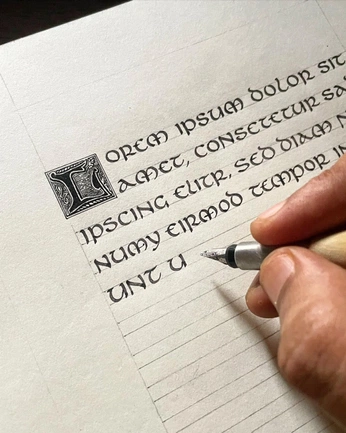 LOREM IPSUM DOLOR SIT
AMET, CONSETETUR SA
IPSCING ELITR, SED DIAM N
NUMY EIRMOD TEMPOR IN
UNT U